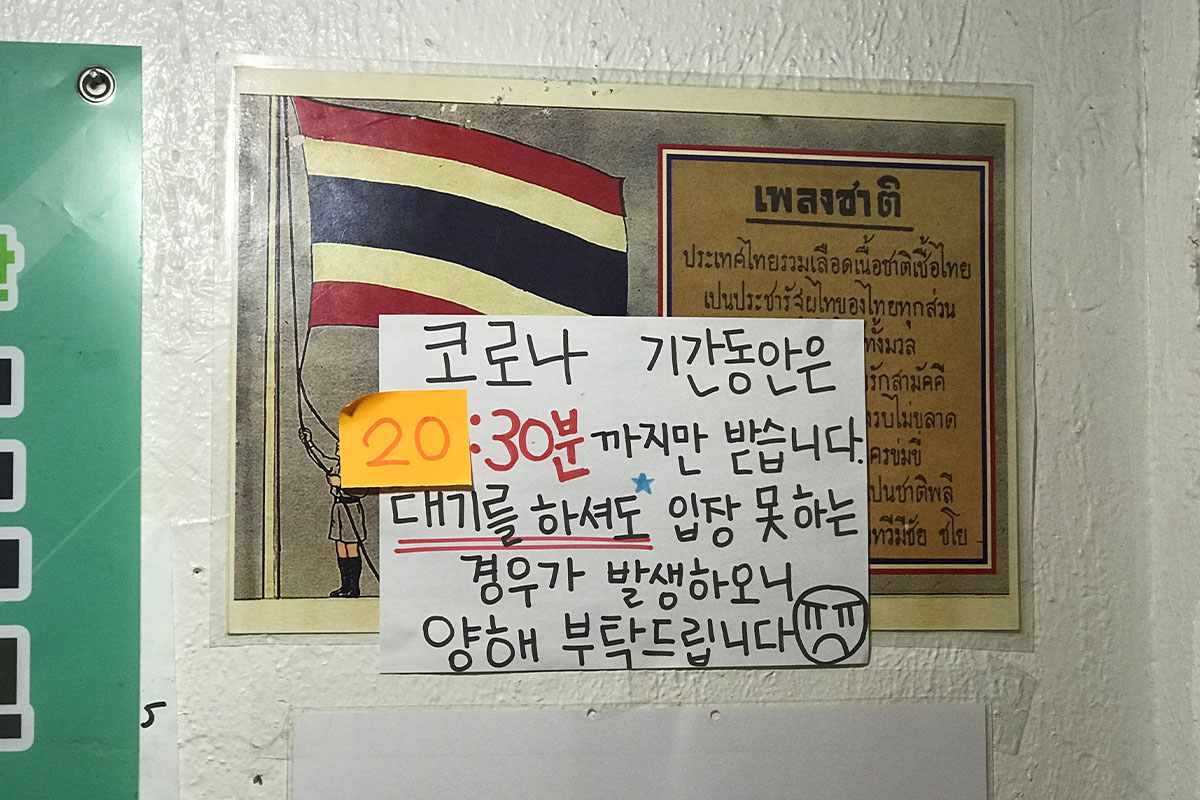 เพลงชาติ
ประเทศไทยรวมเลือดเนื้อชาติเชื้อไทย
เปนประชารัฐผไทของไทยทุกส่วน
ทั้งมวล
รักสามัคคี
รบไม่ขลาด
ครข่มขี่
เปนชาติพลี
ทวีมีชัย ชโย
코로나 기간동안은
20:30분까지만 받습니다.
대기를 하셔도 입장 못하는
경우가 발생하오니
양해 부탁드립니다